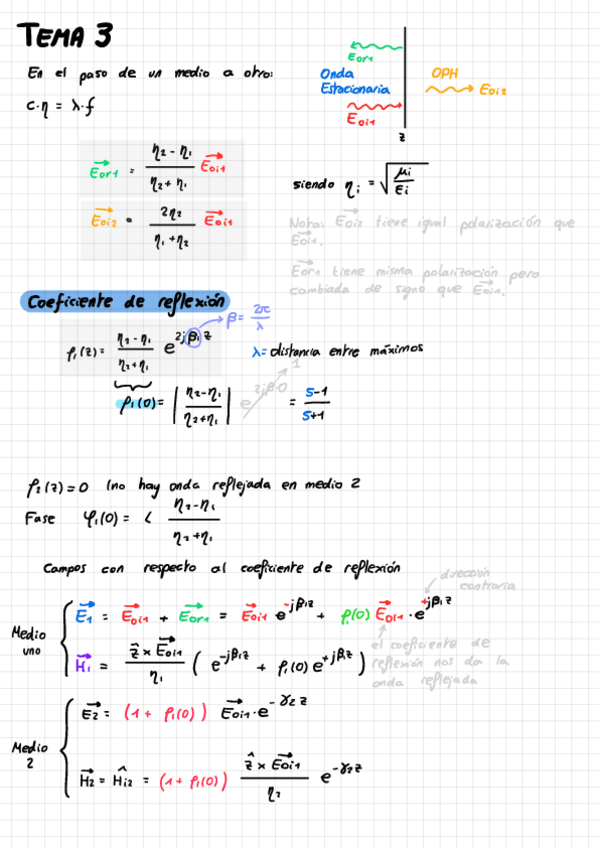 TEMA 3
En el paso de un medio a otro:
C·η = λ·f
Eor1
Onda
Estacionaria
Eoi1
OPH
Eoi2
z
Eor1 = (η2 - η1)/(η2 + η1) Eoi1
Eoi2 = 2η2/(η1 + η2) Eoi1
siendo ηi = √(μi/εi)
Nota: Eoi2 tiene igual polarización que
Eoi1.
Eor1 tiene misma polarización pero
cambiada de signo que Eoi1.
Coeficiente de reflexión
β = 2π/λ
ρ1(z) = (η2 - η1)/(η2 + η1) e^(2jβ1z)
λ = distancia entre máximos
ρ1(0) = |(η2 - η1)/(η2 + η1)| e^(2jβ·0) 1 = (S-1)/(S+1)
ρ2(z) = 0 (no hay onda reflejada en medio 2
Fase φ1(0) = ∠ (η2 - η1)/(η2 + η1)
Campos con respecto al coeficiente de reflexión
dirección
contraria
Medio
uno
E1 = Eoi1 + Eor1 = Eoi1 e^(-jβ1z) + ρ(0) Eoi1 · e^(+jβ1z)
H1 = (ẑ × Eoi1)/η1 (e^(-jβ1z) + ρ1(0) e^(+jβ1z))
el coeficiente de
reflexión nos da la
onda reflejada
Medio
2
E2 = (1 + ρ1(0)) Eoi1 · e^(-γ2z)
H2 = Hi2 = (1 + ρ1(0)) (ẑ × Eoi1)/η2 e^(-γ2z)